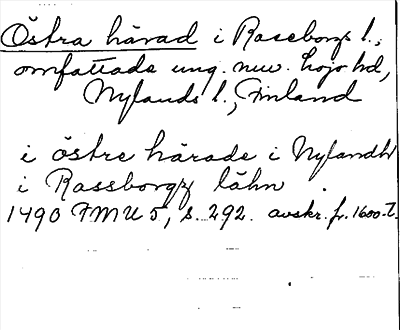 Östra härad i Raseborgs l.,
omfattade ung. nuv. Lojo hd,
Nylands l., Finland
i östre härade i Nylandh
i Rassborgz lähn.
1490 FMU 5, s. 292. avskr. fr. 1600-t.